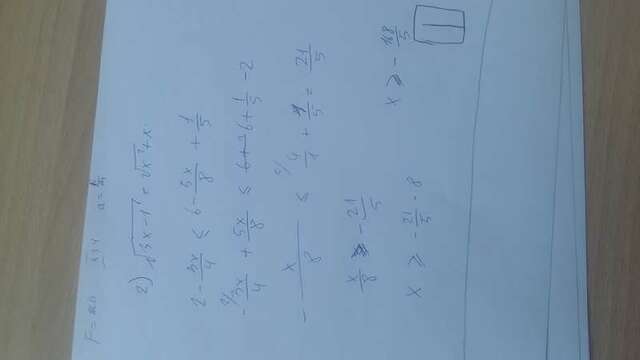 F = a = F/m
2) √3x-1 = √x² + x
2 - 3x/4 ≤ 6 - 5x/8 + 1/5
- 3x/4 + 5x/8 ≤ 6 + 1/5 - 2
- x/8 ≤ 4/1 + 1/5 = 21/5
x/8 ≥ - 21/5
x ≥ - 21/5 · 8
x ≥ - 168/5